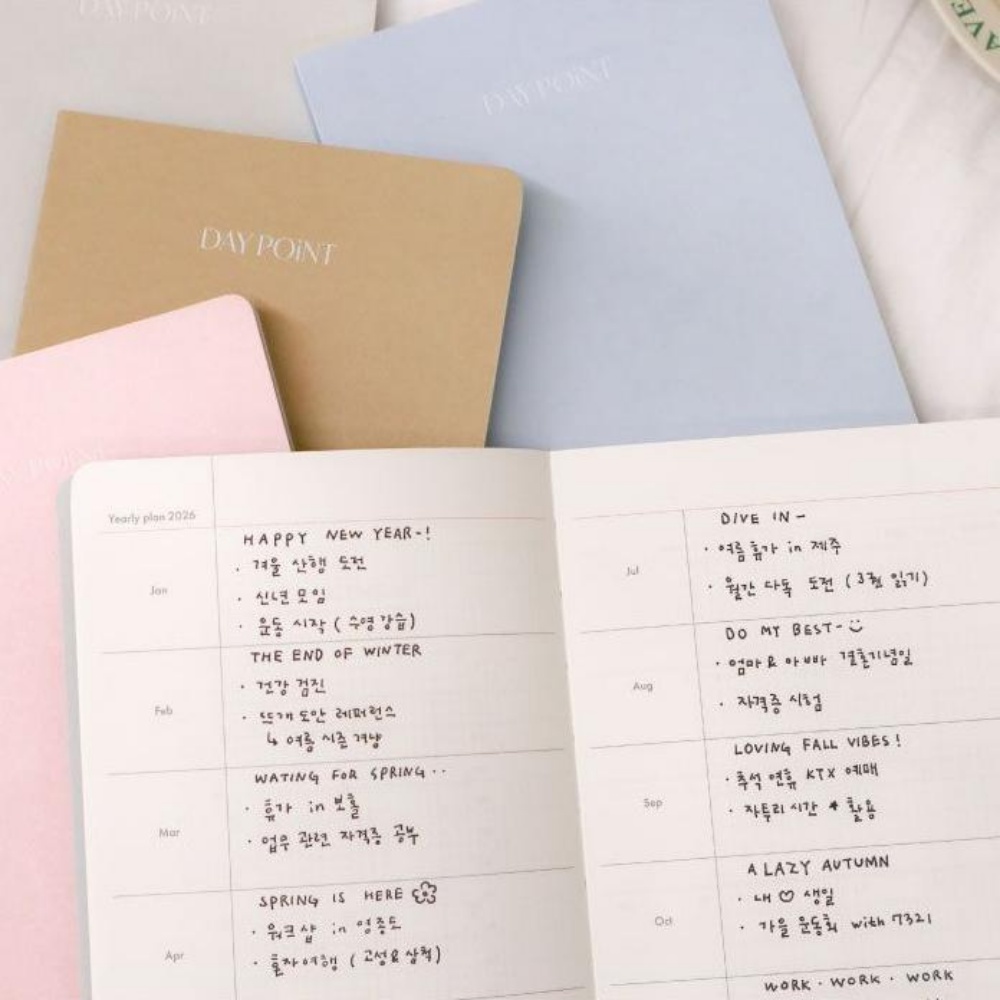 DAY POINT
DAY POINT
DAY POINT
DAY POINT
AVE
Yearly plan 2026
Jan
HAPPY NEW YEAR-!
· 겨울 산행 도전
· 신년 모임
· 운동 시작 (수영 강습)
Feb
THE END OF WINTER
· 건강 검진
· 뜨개 도안 레퍼런스
↳ 여름 시즌 겨냥
Mar
WATING FOR SPRING··
· 휴가 in 보홀
· 업무 관련 자격증 공부
Apr
SPRING IS HERE
· 워크샵 in 영종도
· 혼자여행 (고성&삼척)
Jul
DIVE IN -
· 여름 휴가 in 제주
· 월간 다독 도전 (3권 읽기)
Aug
DO MY BEST-
· 엄마 & 아빠 결혼기념일
· 자격증 시험
Sep
LOVING FALL VIBES!
· 추석 연휴 KTX 예매
· 자투리 시간 활용
Oct
A LAZY AUTUMN
· 내 ♡ 생일
· 가을 운동회 with 7321
WORK · WORK · WORK